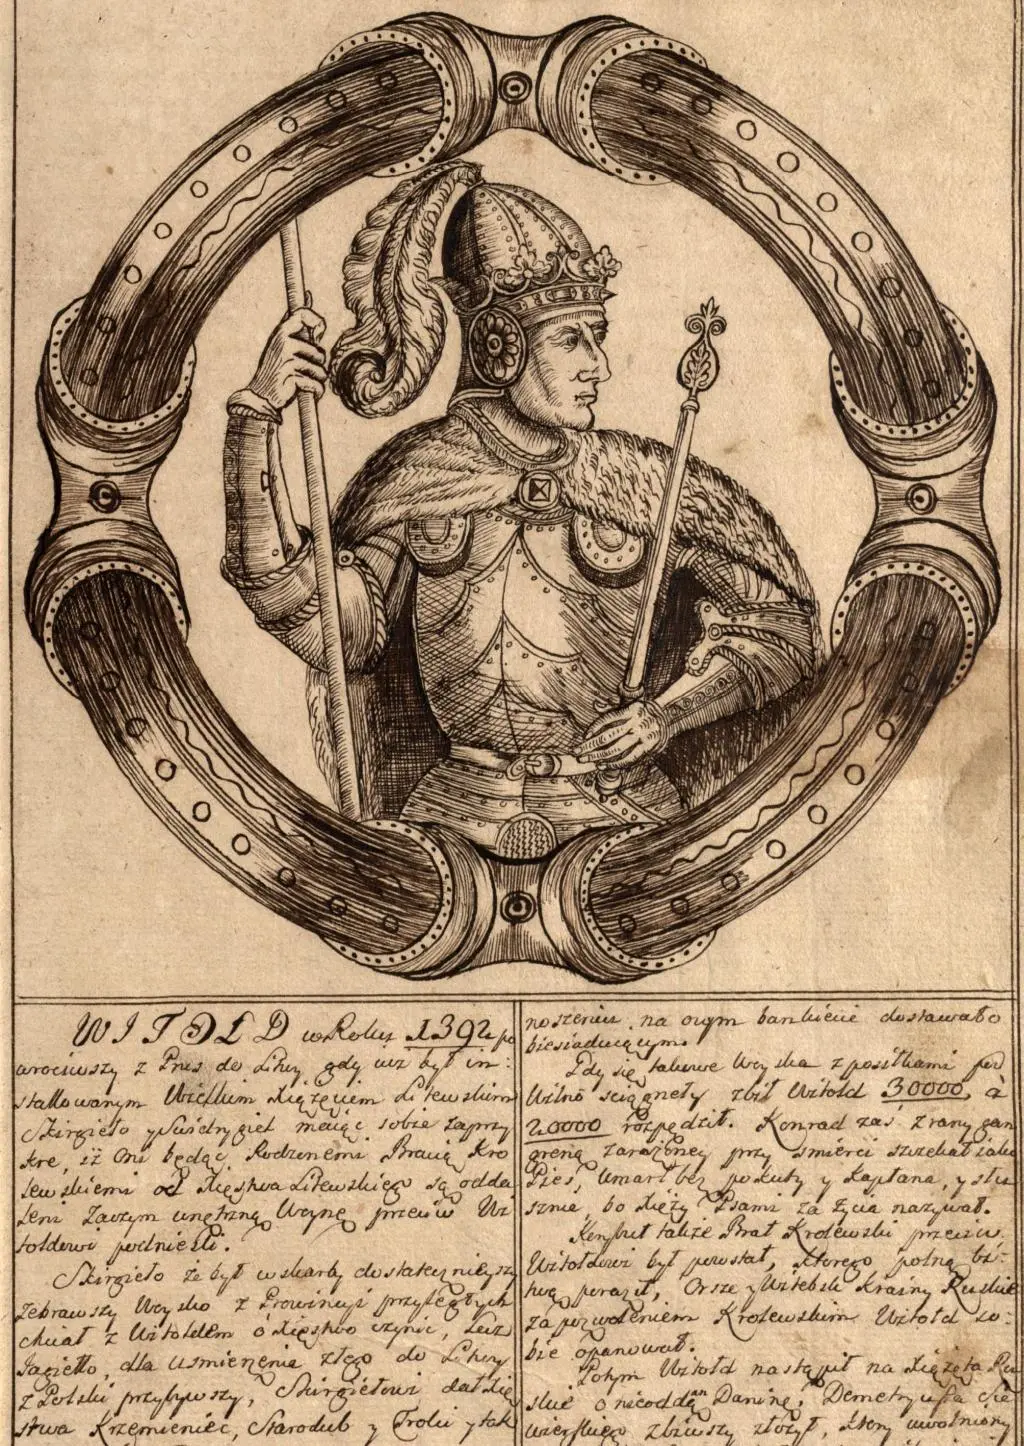 WITOŁD w Roku 1392 po
wróciwszy z Prus do Litwy gdy iuz był in:
stallowanym Wielkim Xiążęciem Litewskim
Skirgieło y Swidrygieł maiąc sobie zaprzy
kre, iż oni będąc Rodzenemi Bracią Kro
lewskiemi od Xięstwa Litewskiego są odda
leni Zaczym wnętrzną Woynę przeciw Wi
toldowi podnieśli.
Skirgieło że był w skarby dostatecznieyszy
zebrawszy Woysko z Prowincyi przyległych
chciał z Witoldem o Xięstwo czynić, lecz
Jagiełło, dla usmierzenia złego do Litwy
z Polski przybywszy, Skirgiełowi dał Xię
stwa Krzemieniec, Starodub y Troki y tak
noszeniu na owym bankiecie dostawało
biesiaduiącym.
Gdy się takowe Woyska z posiłkami pod
Wilno sciągneły zbił Witold 30000, a
20000 rozpędził. Konrad zaś z rany gan
greną zarażoney przy smierci szczekał iako
Pies, umarł bez pokuty y Kapłana, y słu
sznie, bo Xięży Psami za życia nazywał.
Korybut także Brat Krolewski przeciw
Witoldowi był powstał, ktorego polną bi:
twą poraził, Orsze y Witebsk Krainy Ruskie
za pozwoleniem Krolewskim Witold so:
bie opanował.
Potym Witold nastąpił na Xiążęta Ru
skie o nieoddaną Daninę, Demetryusza Sie
wierskiego zbiwszy złożył, ktory uwolniony